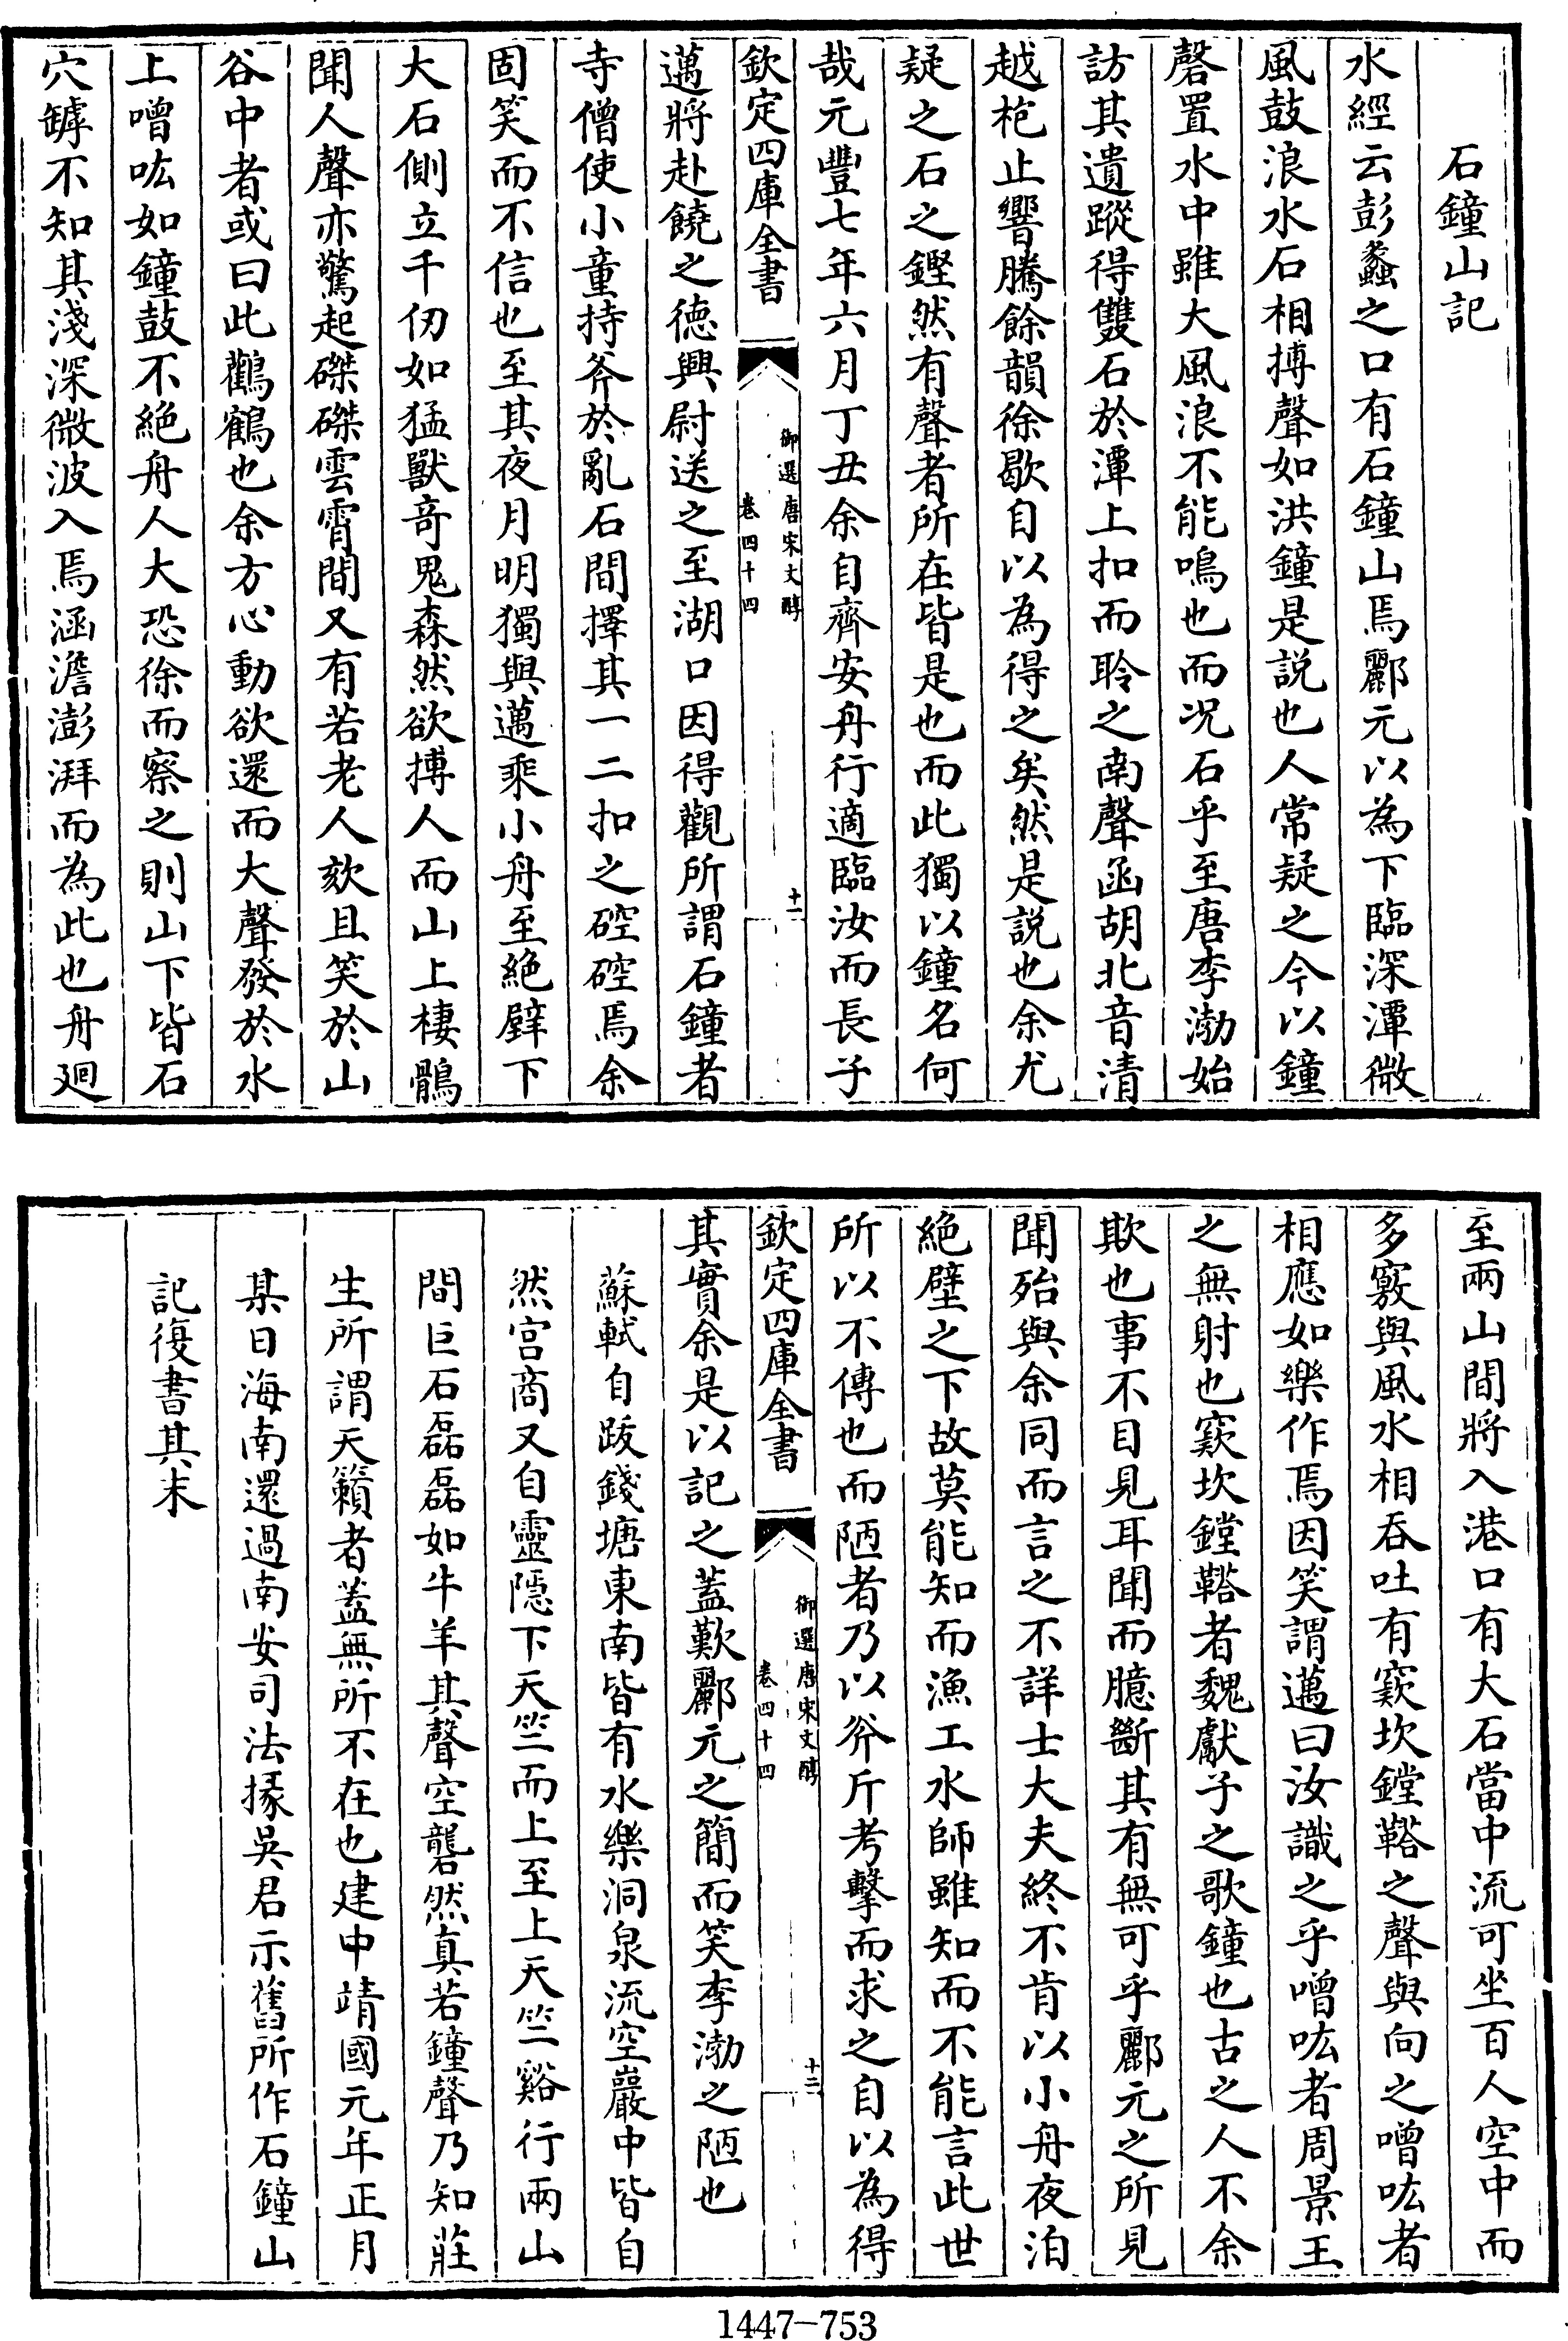 石鐘山記
水經云彭蠡之口有石鐘山焉酈元以為下臨深潭微
風鼓浪水石相搏聲如洪鐘是説也人常疑之今以鐘
磬置水中雖大風浪不能鳴也而况石乎至唐李渤始
訪其遺蹤得雙石於潭上扣而聆之南聲函胡北音清
越枹止響騰餘韻徐歇自以為得之矣然是説也余尤
疑之石之鏗然有聲者所在皆是也而此獨以鐘名何
哉元豐七年六月丁丑余自齊安舟行適臨汝而長子
欽定四庫全書
御選唐宋文醇
卷四十四
十一
邁將赴饒之德興尉送之至湖口因得觀所謂石鐘者
寺僧使小童持斧於亂石間擇其一二扣之硿硿焉余
固笑而不信也至其夜月明獨與邁乘小舟至絶壁下
大石側立千仞如猛獸奇鬼森然欲搏人而山上棲鶻
聞人聲亦驚起磔磔雲霄間又有若老人欬且笑於山
谷中者或曰此鸛鶴也余方心動欲還而大聲發於水
上噌吰如鐘鼓不絶舟人大恐徐而察之則山下皆石
穴罅不知其淺深微波入焉涵澹澎湃而為此也舟廻
至兩山間將入港口有大石當中流可坐百人空中而
多竅與風水相吞吐有窾坎鏜鞳之聲與向之噌吰者
相應如樂作焉因笑謂邁曰汝識之乎噌吰者周景王
之無射也窾坎鏜鞳者魏獻子之歌鐘也古之人不余
欺也事不目見耳聞而臆斷其有無可乎酈元之所見
聞殆與余同而言之不詳士大夫終不肯以小舟夜泊
絶壁之下故莫能知而漁工水師雖知而不能言此世
所以不傳也而陋者乃以斧斤考擊而求之自以為得
欽定四庫全書
御選唐宋文醇
卷四十四
十二
其實余是以記之蓋歎酈元之簡而笑李渤之陋也
蘇軾自跋錢塘東南皆有水樂洞泉流空巖中皆自
然宫商又自靈隱下天竺而上至上天竺谿行兩山
間巨石磊磊如牛羊其聲空礱然真若鐘聲乃知莊
生所謂天籟者蓋無所不在也建中靖國元年正月
某日海南還過南安司法掾吳君示舊所作石鐘山
記復書其末
1447-753